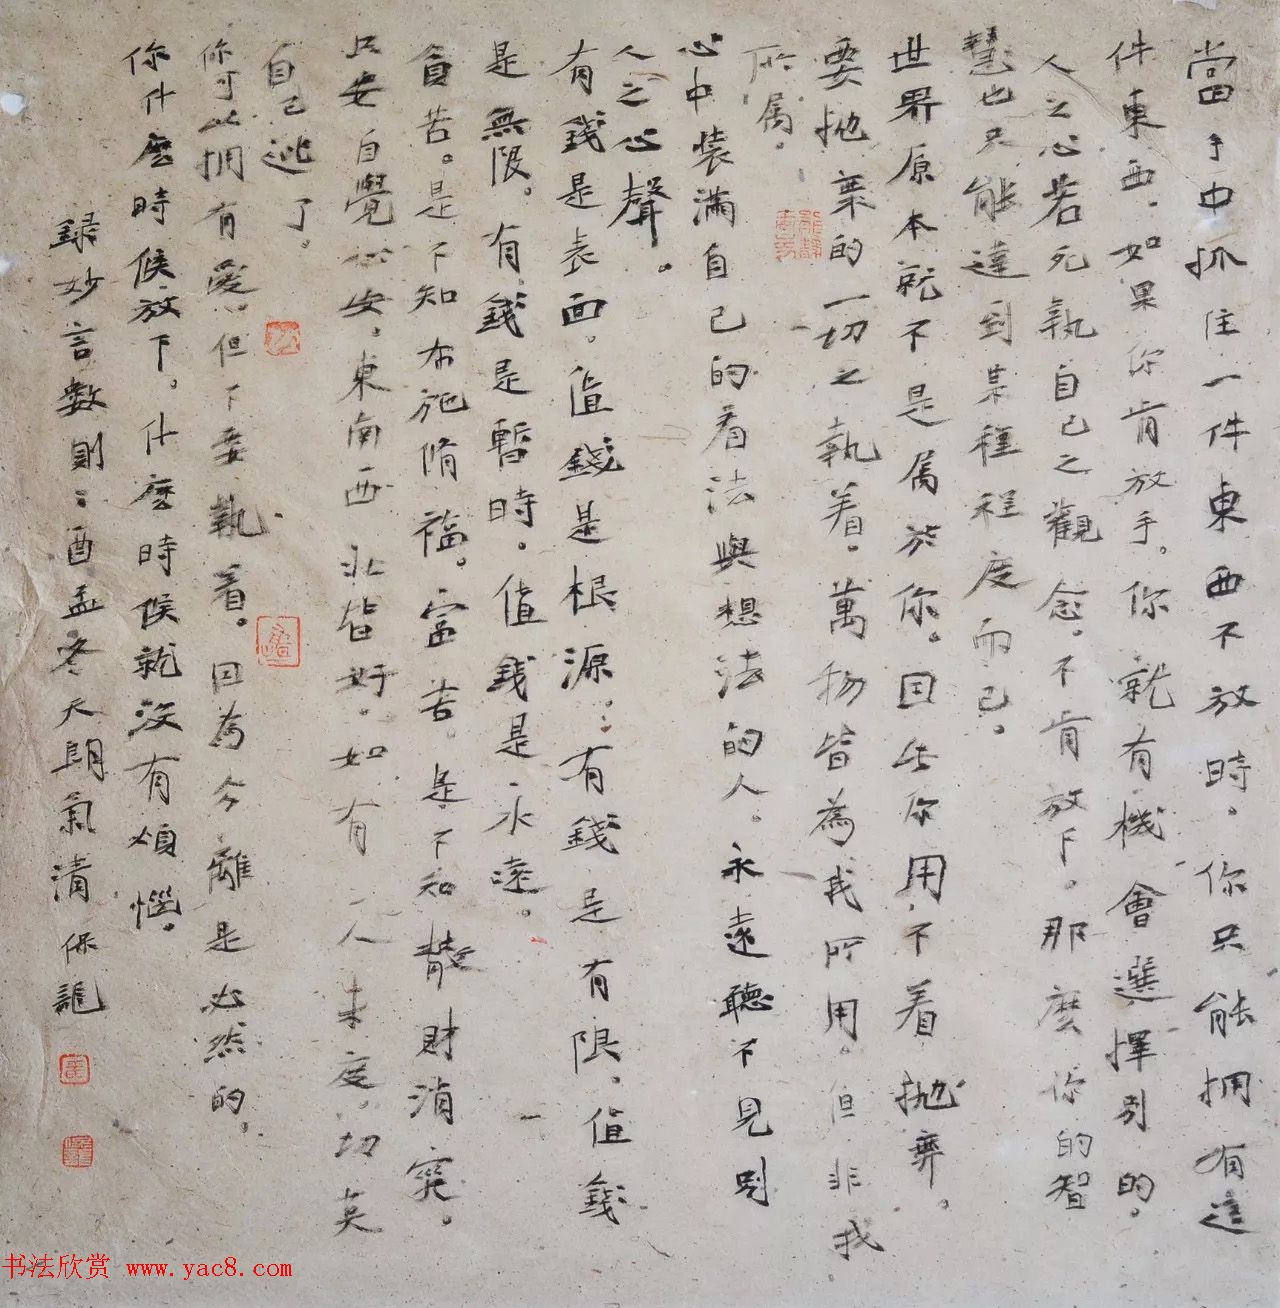 當手中抓住一件東西不放時。你只能拥有這
件東西。如果你肯放手。你就有機會選擇别的。
人之心若死執自己之觀念。不肯放下。那麽你的智
慧也只能達到某種程度而已。
世界原本就不是属於你。因此你用不着抛棄。
要抛棄的一切之執着。萬物皆為我所用。但非我
所属。
心中装滿自己的看法與想法的人。永遠聽不見别
人之心聲。
有錢是表面。值錢是根源。有錢是有限。值錢
是無限。有錢是暫時。值錢是永遠。
貧苦。是不知布施脩福。富苦。是不知散財消灾。
只要自覺心安。東南西北皆好。如有一人未度。切莫
自己逃了。
你可以拥有爱。但不要執着。因為分離是必然的。
你什麽時候放下。什麽時候就没有煩惱。
録妙言數則。酉孟冬天朗氣清 保龍
书法欣赏 www.yac8.com